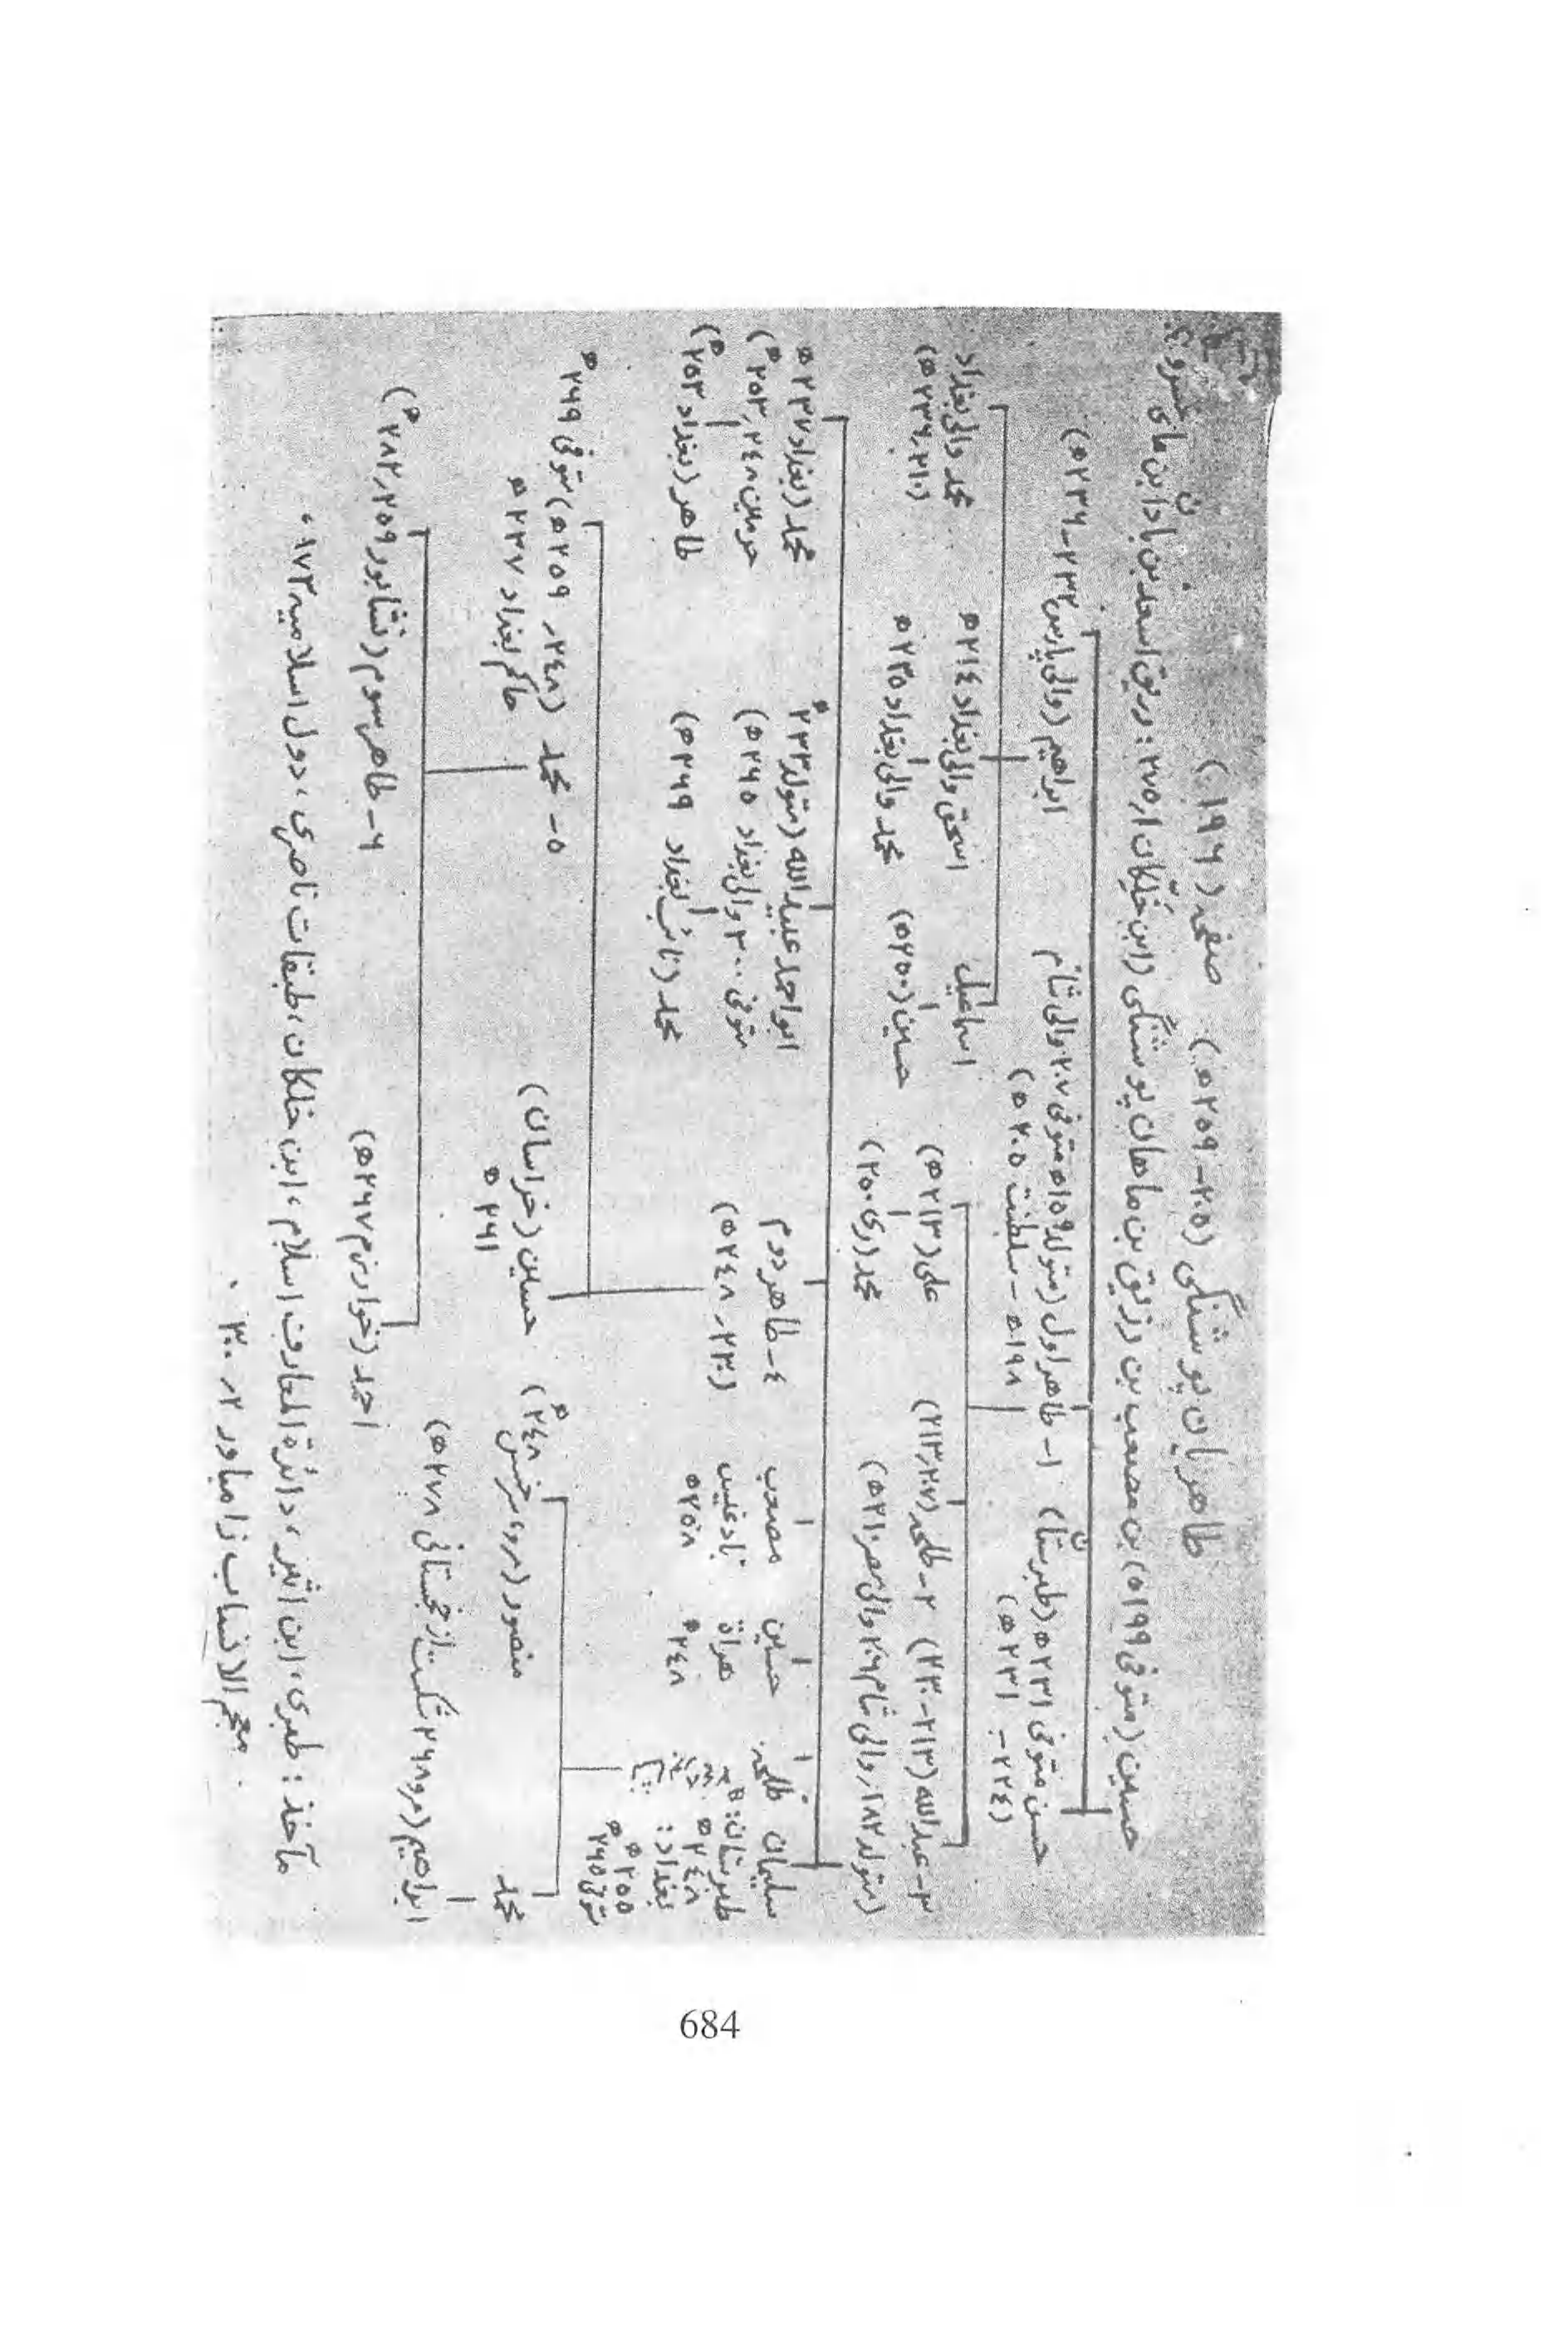 طاهریان پوشنگی (۲۰۵ – ۲۵۹ ه) صفحه (۱۹۶)
حسین (متوفی ۱۹۹ه) بن مصعب بن رزیق بن ماهان پوشنگی (ابن خلکان ۱ر۲۷۵: رزیق اسعد بن بادا بن مای
حسن متوفی ۲۳۱ ه (طبرستان)
(۲۲۴ – ۲۳۱ ه)
۱– طاهر اول (متولد ۱۵۹ه متوفی ۲۰۷ والی شام
۱۹۸ ه – سلطنت ۲۰۵ ه)
ابراهیم (والی پارس ۲۳۲ – ۲۳۶ ه)
۳– عبدالله (۲۱۳ – ۲۳۰)
(متولد ۱۸۲، والی شام ۲۰۶ والی مصر ۲۱۰ ه)
۲– طلحه (۲۰۷ر۲۱۳)
علی (۲۱۳ ه)
محمد (ری ۲۵۰)
اسماعیل
حسین (۲۵۰ ه)
اسحق والی بغداد ۲۱۴ ه
محمد والی بغداد ۲۳۵ ه
محمد والی بغداد
(۲۱۰ر۲۳۶ ه)
سلیمان
طبرستان:
۲۴۸ ه
بغداد:
۲۵۵ ه
متوفی ۲۶۵ ه
طلحه
حسین
هراة
۲۴۸ ه
مصعب
بادغیس
۲۵۸ ه
۴– طاهر دوم
(۲۳۰ر ۲۴۸ ه)
ابو احمد عبیدالله (متولد ۲۲۳ ه
متوفی ۳۰۰ والی بغداد ۲۶۵ ه)
محمد (نائب بغداد ۲۶۹ ه)
محمد (بغداد ۲۳۷ ه
حرمین ۲۴۸ر۲۵۳ ه)
طاهر (بغداد ۲۵۳ ه)
محمد
ابراهیم (مرو ۲۶۸ شکست از خجستانی ۲۷۸ ه)
منصور (مرو، سرخس ۲۴۸ ه)
حسین (خراسان)
۲۶۱ ه
۵– محمد (۲۴۸ر ۲۵۹ ه) متوفی ۲۶۹ ه
حاکم بغداد ۲۳۷ ه
احمد (خوارزم ۲۶۷ ه)
۶– طاهر سوم (نشاپور ۲۵۹ر۲۸۲ ه)
مآخذ: طبری، ابن اثیر، دائرة المعارف اسلام، ابن خلکان، طبقات ناصری، دول اسلامیه ۱۷۳،
معجم الانساب زامباور ۲ر ۳۰۰ .
684